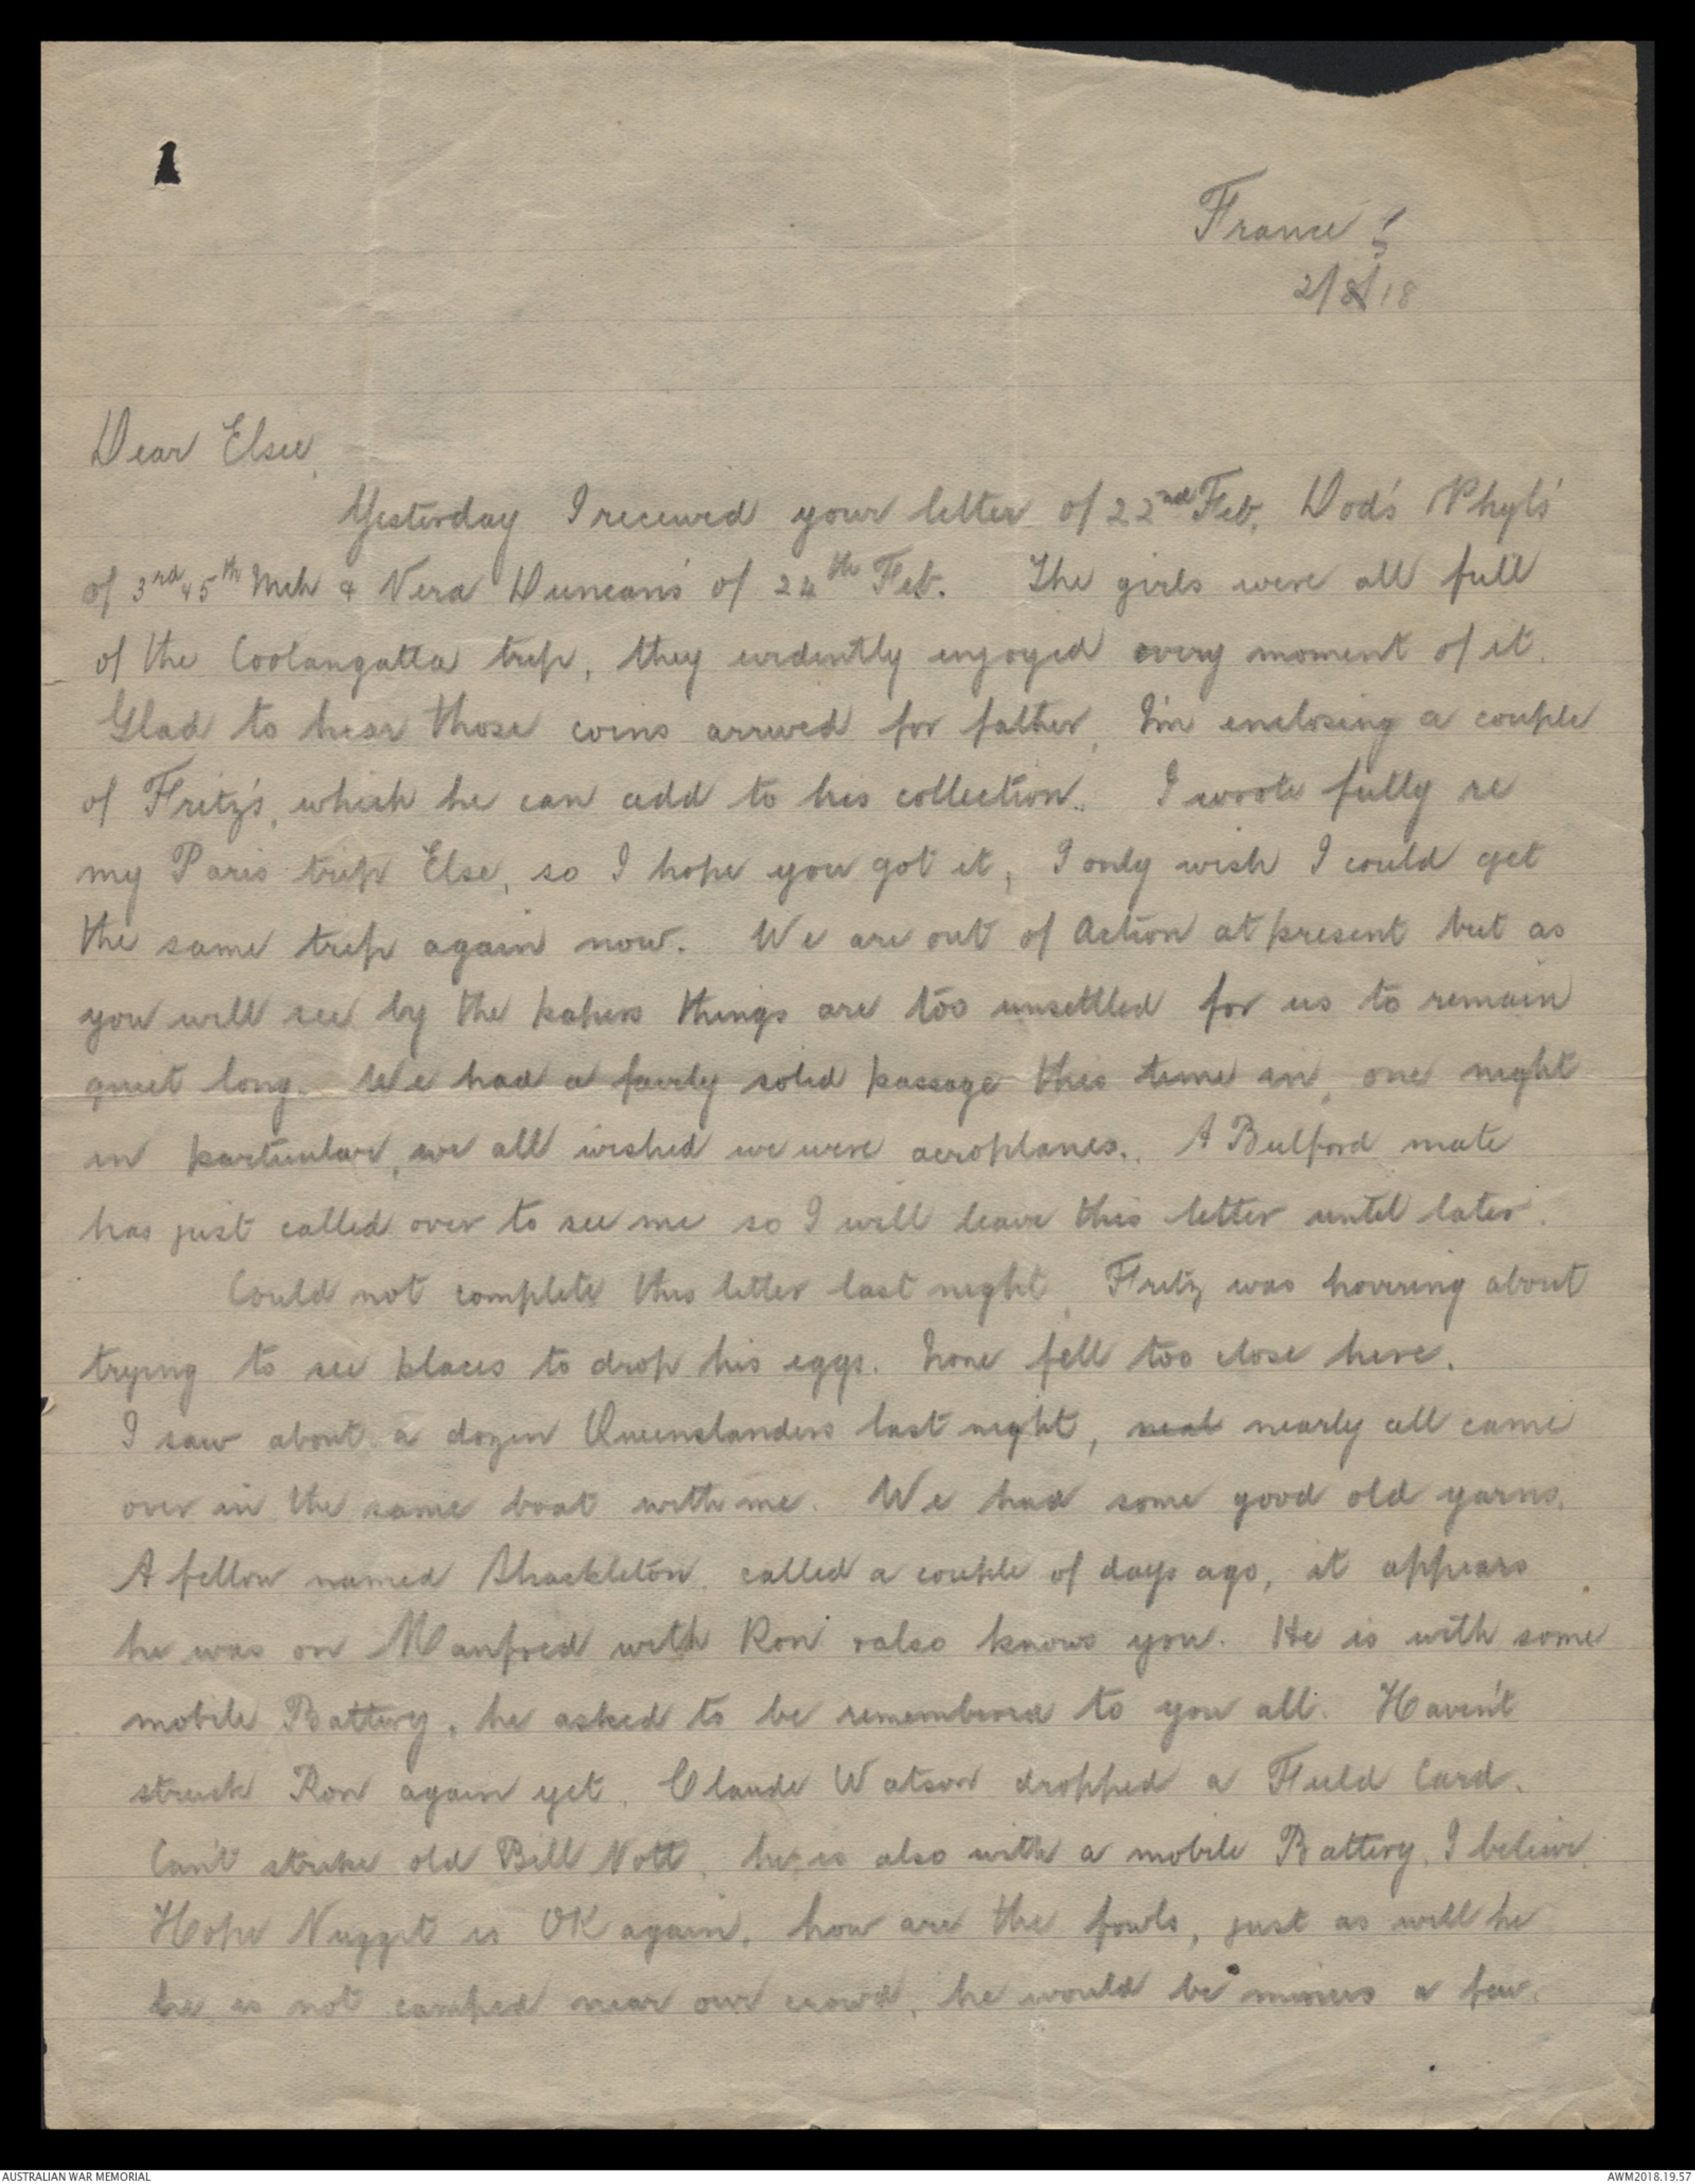 France
2/5/18
Dear Elsie,
Yesterday I received your letter of 22nd Feb, Dod's Phyl's
of 3rd & 5th Mch & Vera Duncan's of 24th Feb. The girls were all full
of the Coolangatta trip, they evidently enjoyed every moment of it.
Glad to hear those coins arrived for father, I'm enclosing a couple
of Fritz's, which he can add to his collection. I wrote fully re
my Paris trip Else, so I hope you got it, I only wish I could get
the same trip again now. We are out of Action at present but as
you will see by the papers things are too unsettled for us to remain
quiet long. We had a fairly solid passage this time in, one night
in particular, we all wished we were aeroplanes. A Bulford mate
has just called over to see me so I will leave this letter until later.
Could not complete this letter last night, Fritz was hovering about
trying to see places to drop his eggs. None fell too close here.
I saw about a dozen Queenslanders last night, neal nearly all came
over in the same boat with me. We had some good old yarns.
A fellow named Shackleton called a couple of days ago, it appears
he was on Manfred with Ron & also knows you. He is with some
mobile Battery, he asked to be remembered to you all. Haven't
struck Ron again yet. Claude Watson dropped a Field Card.
Can't strike old Bill Nott, he is also with a mobile Battery, I believe.
Hope Nugget is OK again, how are the fowls, just as well he
he is not camped near our crowd, he would be minus a few.
AUSTRALIAN WAR MEMORIAL
AWM2018.19.57